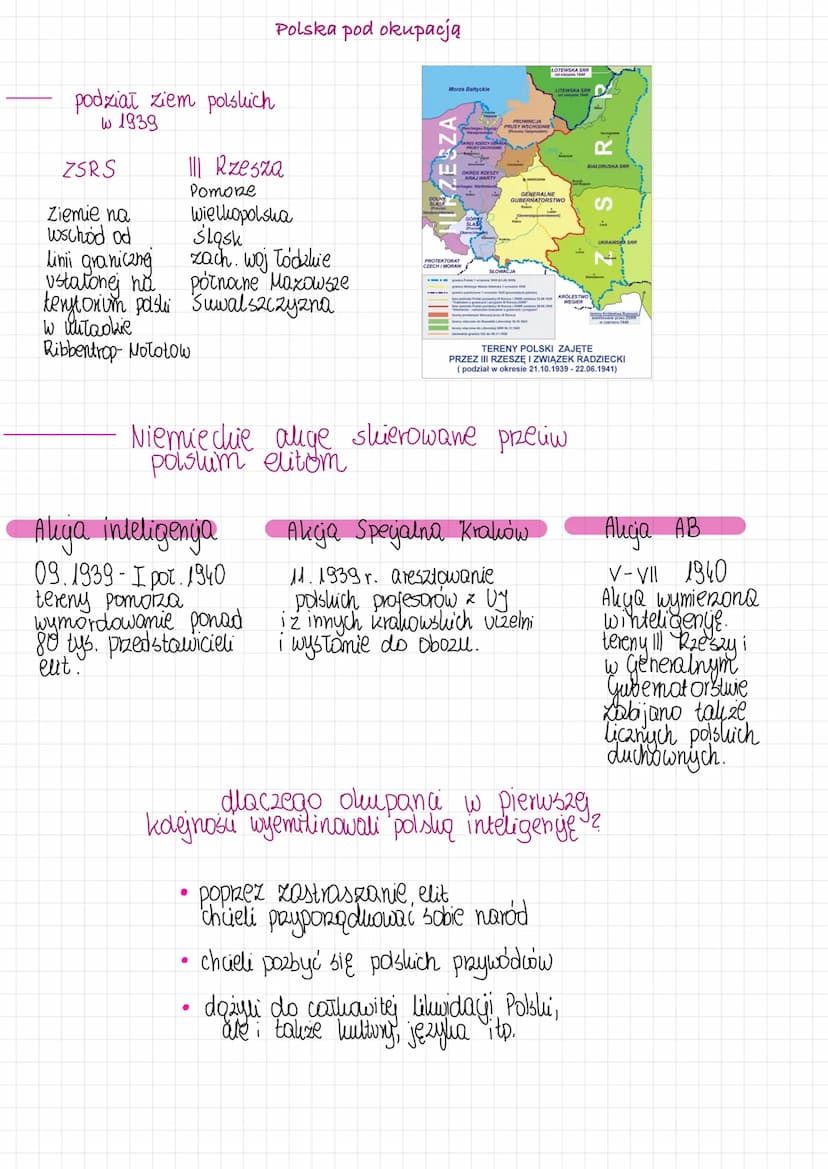 Polska pod okupacją
podział ziem polskich
w 1939
ZSRS
ziemie na
wschód od
linii granicznej
ustalonej na
terytorium polski
w układzie
Ribbentrop-Mołotow
III Rzesza
Pomorze
wielkopolska
śląsk
zach. woj łódzkie
północne Mazowsze
Suwalszczyzna
Morze Bałtyckie
ŁOTEWSKA SRR
LITEWSKA SRR
PROWINCJA
PRUSY WSCHODNIE
III RZESZA
OKRĘG RZESZY
KRAJ WARTY
BIAŁORUSKA SRR
GENERALNE
GUBERNATORSTWO
ZSRR
UKRAIŃSKA SRR
PROTEKTORAT
CZECH I MORAW
SŁOWACJA
KRÓLESTWO
WĘGIER
TERENY POLSKI ZAJĘTE
PRZEZ III RZESZĘ I ZWIĄZEK RADZIECKI
( podział w okresie 21.10.1939 - 22.06.1941)
Niemieckie akcje skierowane przeciw
polskim elitom
Akcja inteligencja
09.1939 - I poł. 1940
tereny pomorza
wymordowanie ponad
80 tys. przedstawicieli
elit.
Akcja Specjalna Kraków
11.1939 r. aresztowanie
polskich profesorów z UJ
i z innych krakowskich uczelni
i wysłanie do obozu.
Akcja AB
V-VII 1940
Akcja wymierzona
w inteligencję.
tereny III Rzeszy i
w Generalnym
Gubernatorstwie
zabijano także
licznych polskich
duchownych.
dlaczego okupanci w pierwszej
kolejności wyemilinowali polską inteligencję?
• poprzez zastraszanie elit
chcieli przyporządkować sobie naród
• chcieli pozbyć się polskich przywódców
• dążyli do całkowitej likwidacji Polski,
ale i także kultury, języka itp.